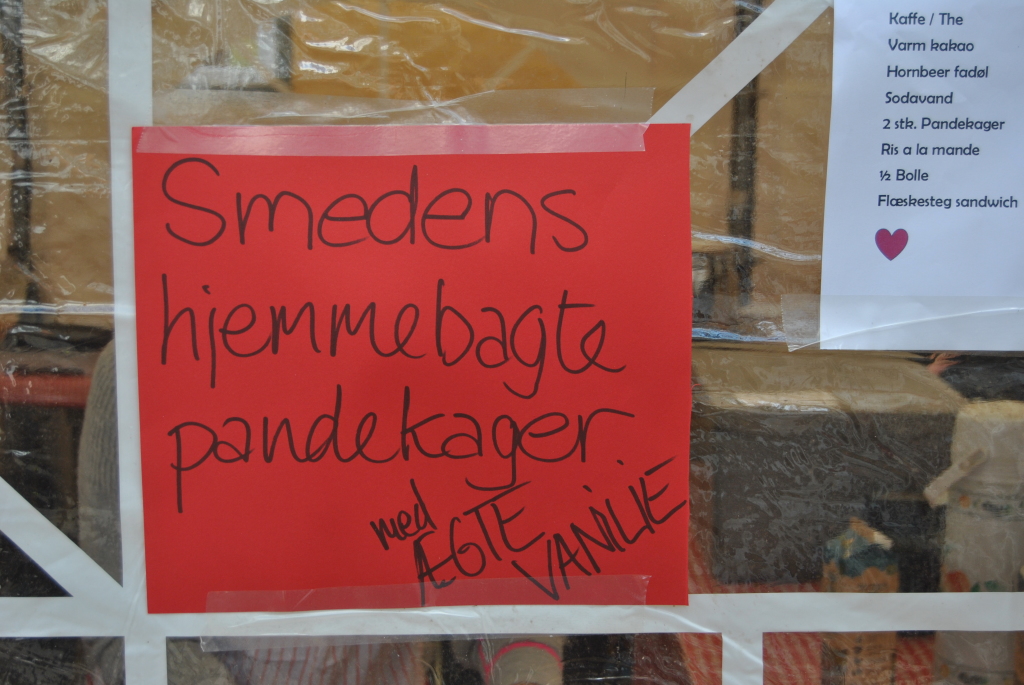 Smedens
hjemmebagte
pandekager
med
ÆGTE
VANILIE
Kaffe / The
Varm kakao
Hornbeer fadøl
Sodavand
2 stk. Pandekager
Ris a la mande
½ Bolle
Flæskesteg sandwich